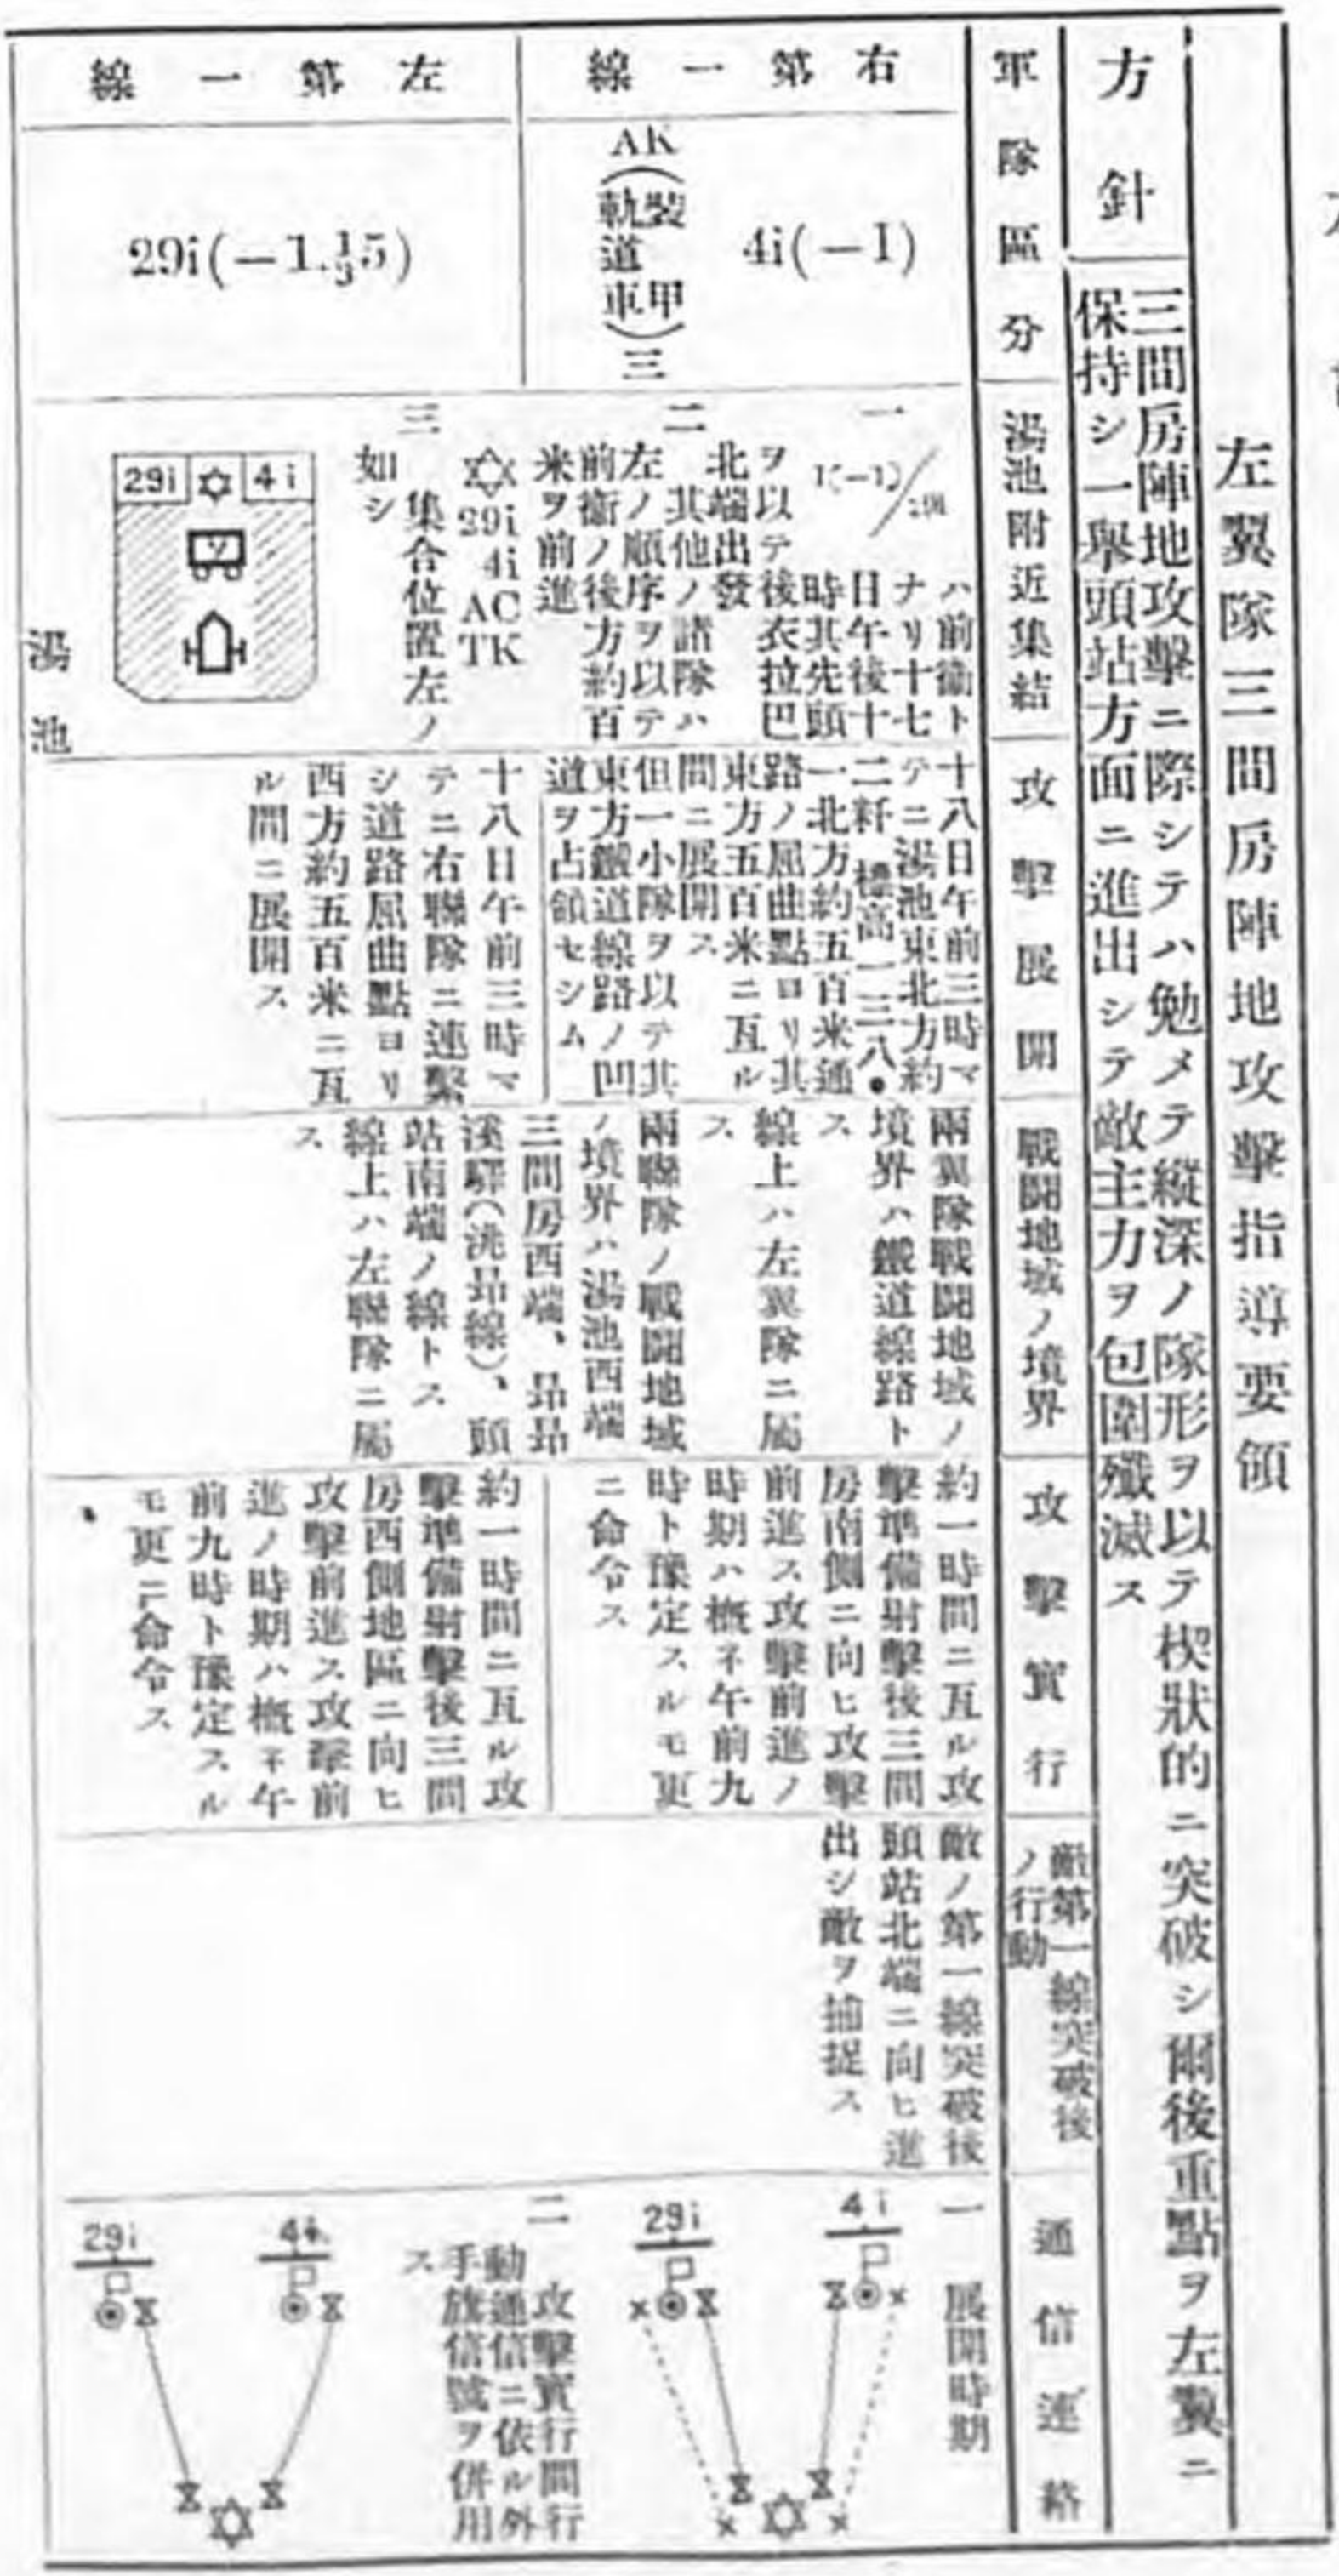 左翼隊三間房陣地攻擊指導要領
方針
三間房陣地攻擊ニ際シテハ勉メテ縱深ノ隊形ヲ以テ楔狀的ニ突破シ爾後重點ヲ左翼ニ
保持シ一擧頭站方面ニ進出シテ敵主力ヲ包圍殲滅ス
軍隊區分
右第一線
4i(−I)
AK(裝甲軌道車)三
左第一線
湯池附近集結
一
ハ前衞ト
ナリ十七
日午後十
時其先頭
ヲ以テ後衣拉巴
北端出發
二
其他ノ諸隊ハ
左ノ順序ヲ以テ
前衞ノ後方約百
米ヲ前進
29i 4i AC TK
三
集合位置左ノ
如シ
29i
4i
湯池
攻擊展開
十八日午前三時マ
テニ湯池東北方約
二粁 標高一三八・
一北方約五百米通
路ノ屈曲點ヨリ其
東方五百米ニ亙ル
間ニ展開ス
但一小隊ヲ以テ其
東方鐵道線路ノ凹
道ヲ占領セシム
十八日午前三時マ
テニ右聯隊ニ連繫
シ道路屈曲點ヨリ
西方約五百米ニ亙
ル間ニ展開ス
戰鬪地域ノ境界
兩翼隊戰鬪地域ノ
境界ハ鐵道線路ト
ス
線上ハ左翼隊ニ屬
ス
兩聯隊ノ戰鬪地域
ノ境界ハ湯池西端
三間房西端、昻昻
溪驛(洮昻線)、頭
站南端ノ線トス
線上ハ左聯隊ニ屬
ス
攻擊實行
約一時間ニ亙ル攻
擊準備射擊後三間
房南側ニ向ヒ攻擊
前進ス攻擊前進ノ
時期ハ概ネ午前九
時ト豫定スルモ更
ニ命令ス
約一時間ニ亙ル攻
擊準備射擊後三間
房西側地區ニ向ヒ
攻擊前進ス攻擊前
進ノ時期ハ概ネ午
前九時ト豫定スル
モ更ニ命令ス
敵第一線突破後
ノ行動
敵ノ第一線突破後
頭站北端ニ向ヒ進
出シ敵ヲ捕捉ス
通信連絡
一
展開時期
4i
29i
二
攻擊實行間行
動通信ニ依ル外
手旗信號ヲ併用
ス
4i
29i